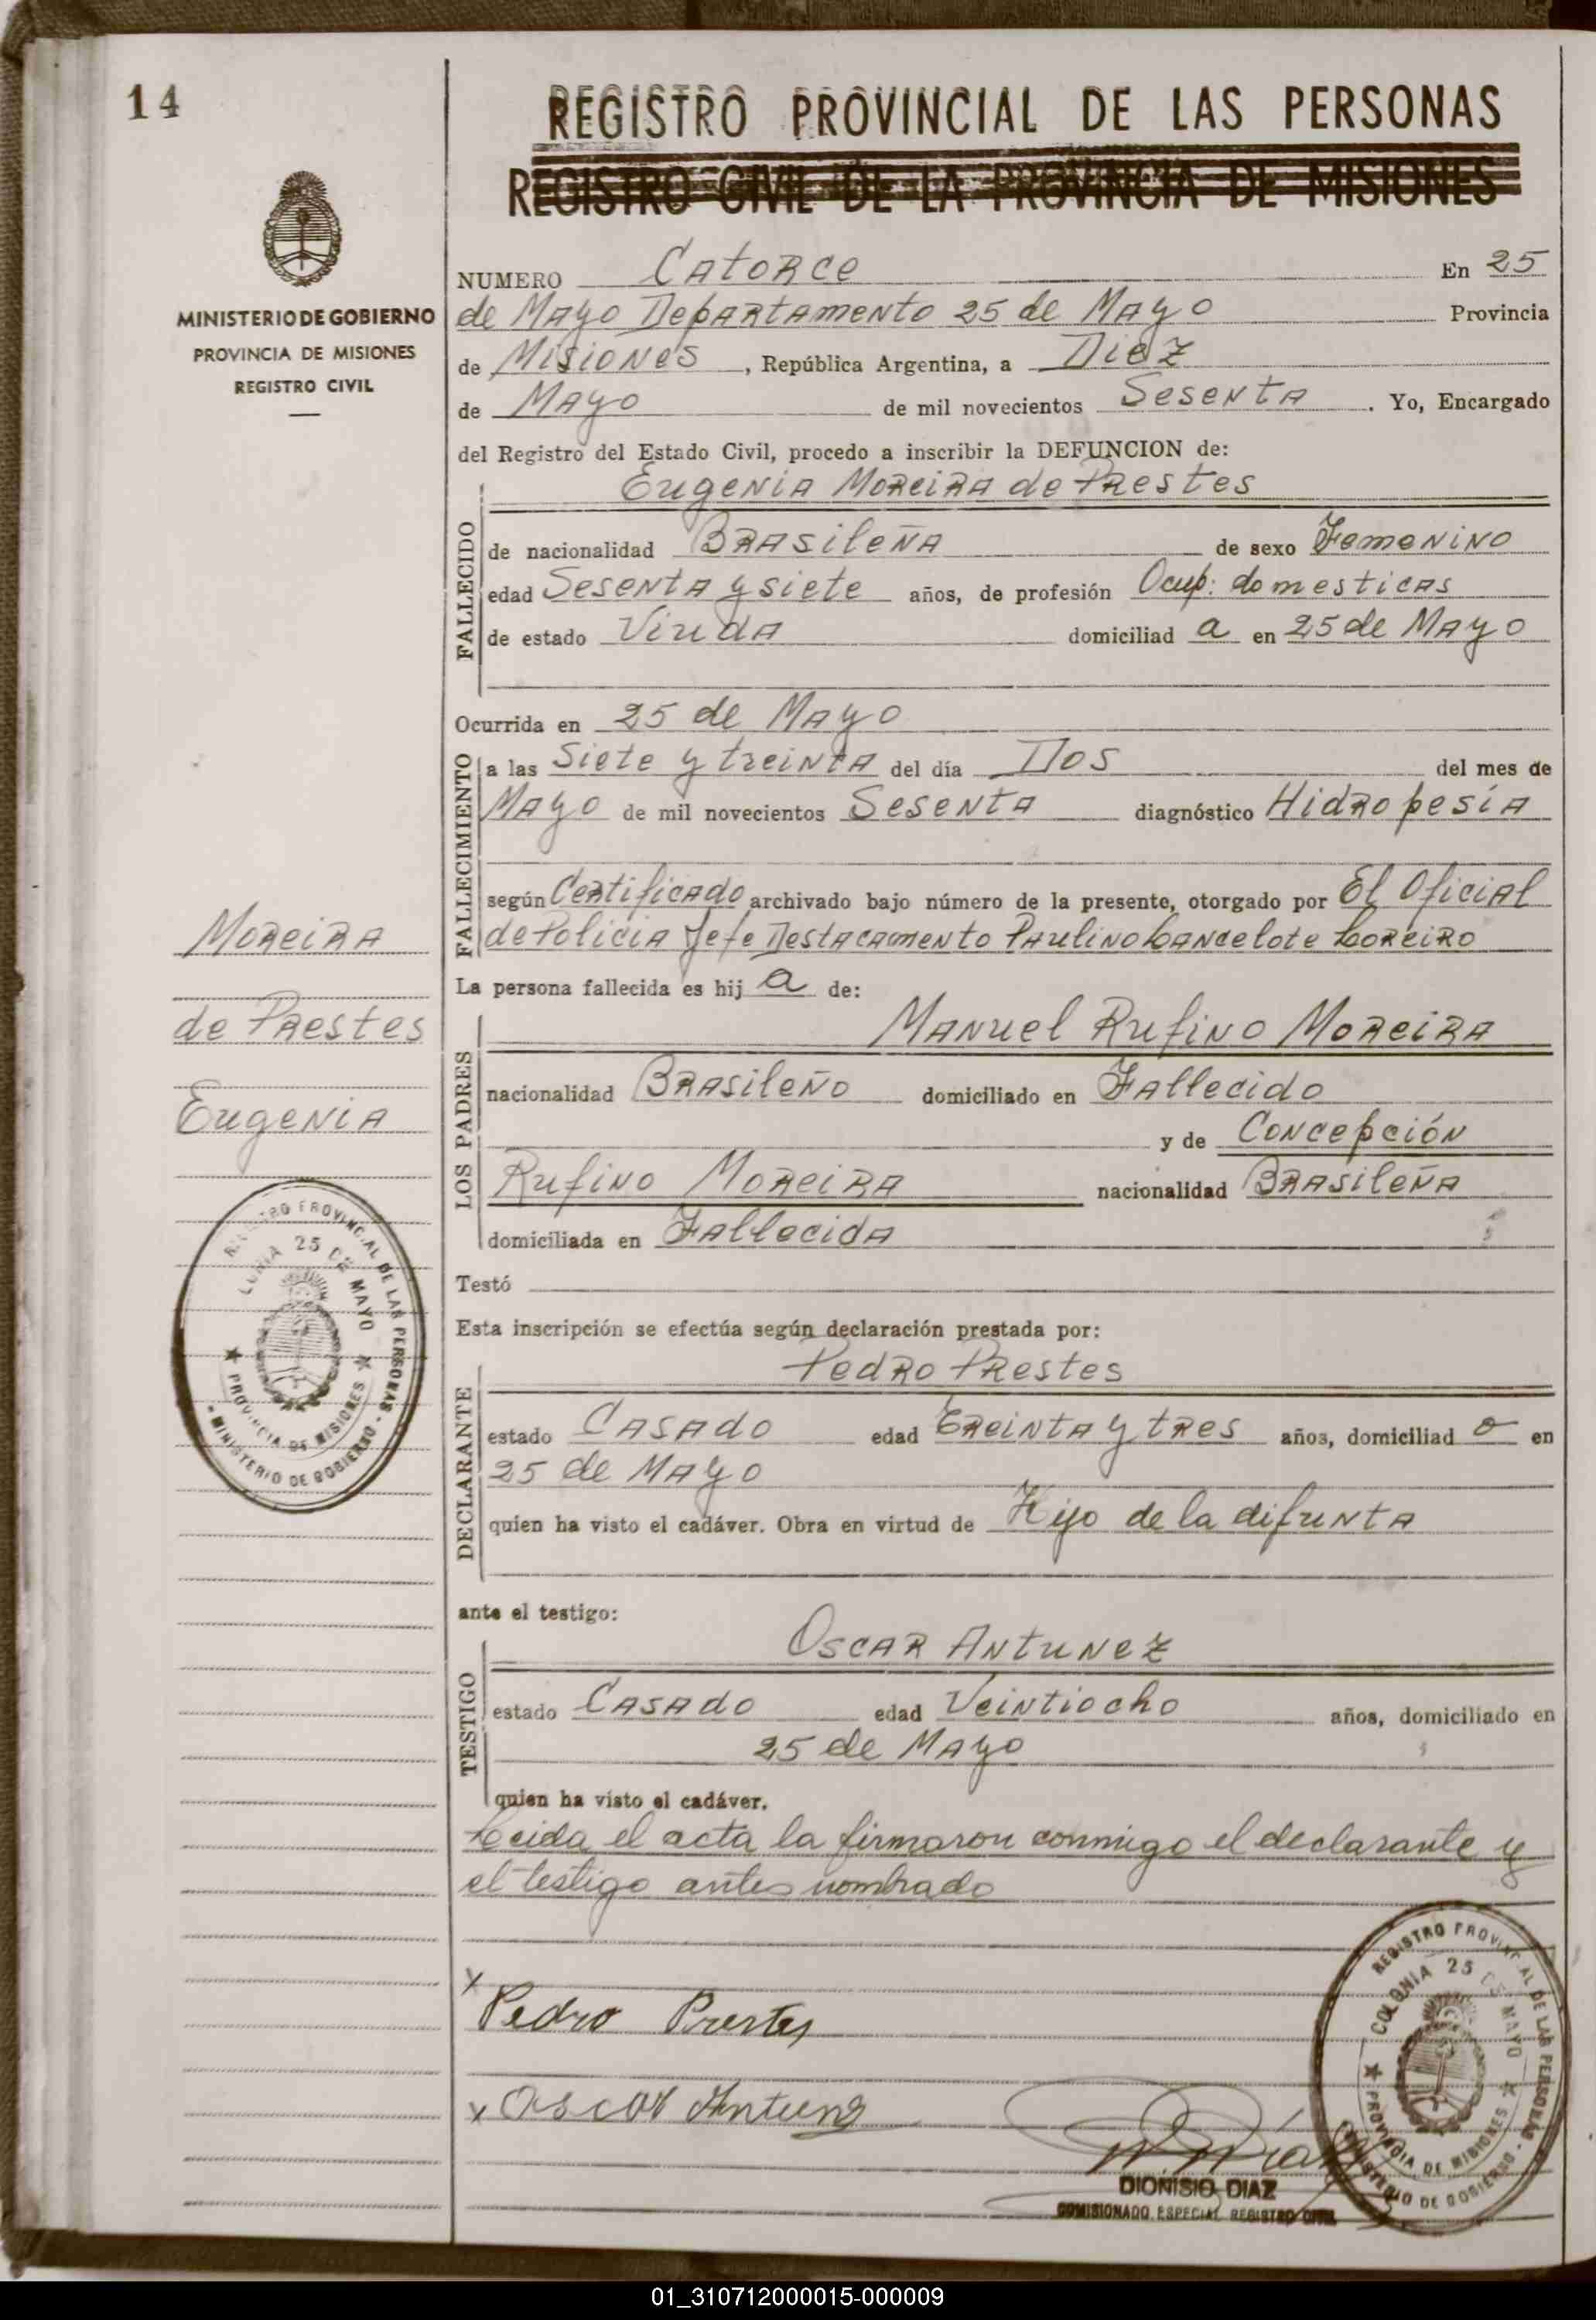 14
REGISTRO PROVINCIAL DE LAS PERSONAS
REGISTRO CIVIL DE LA PROVINCIA DE MISIONES
MINISTERIO DE GOBIERNO
PROVINCIA DE MISIONES
REGISTRO CIVIL
NUMERO Catorce En 25
de Mayo Departamento 25 de Mayo Provincia
de Misiones, República Argentina, a Diez
de Mayo de mil novecientos Sesenta. Yo, Encargado
del Registro del Estado Civil, procedo a inscribir la DEFUNCION de:
Eugenia Moreira de Prestes
FALLECIDO
de nacionalidad Brasileña de sexo Femenino
edad Sesenta y siete años, de profesión Ocup: domesticas
de estado Viuda domiciliad a en 25 de Mayo
Ocurrida en 25 de Mayo
FALLECIMIENTO
a las Siete y treinta del día Dos del mes de
Mayo de mil novecientos Sesenta diagnóstico Hidropesía
según Certificado archivado bajo número de la presente, otorgado por El Oficial
de Policia Jefe Destacamento Paulino Lancelote Loreiro
La persona fallecida es hij a de:
Moreira
de Prestes
Eugenia
LOS PADRES
Manuel Rufino Moreira
nacionalidad Brasileño domiciliado en Fallecido
y de Concepción
Rufino Moreira nacionalidad Brasileña
domiciliada en Fallecida
REGISTRO PROVINCIAL DE LAS PERSONAS - MINISTERIO DE GOBIERNO -
COLONIA 25 DE MAYO ★ PROVINCIA DE MISIONES ★
Testó
Esta inscripción se efectúa según declaración prestada por:
Pedro Prestes
DECLARANTE
estado Casado edad Treinta y tres años, domiciliad o en
25 de Mayo
quien ha visto el cadáver. Obra en virtud de Hijo de la difunta
ante el testigo:
Oscar Antunez
TESTIGO
estado Casado edad Veintiocho años, domiciliado en
25 de Mayo
quien ha visto el cadáver.
Leida el acta la firmaron conmigo el declarante y
el testigo antes nombrado
x
Pedro Prestes
x Oscar Antunez
DIONISIO DIAZ
COMISIONADO ESPECIAL REGISTRO CIVIL
REGISTRO PROVINCIAL DE LAS PERSONAS - MINISTERIO DE GOBIERNO -
COLONIA 25 DE MAYO ★ PROVINCIA DE MISIONES ★
01_310712000015-000009